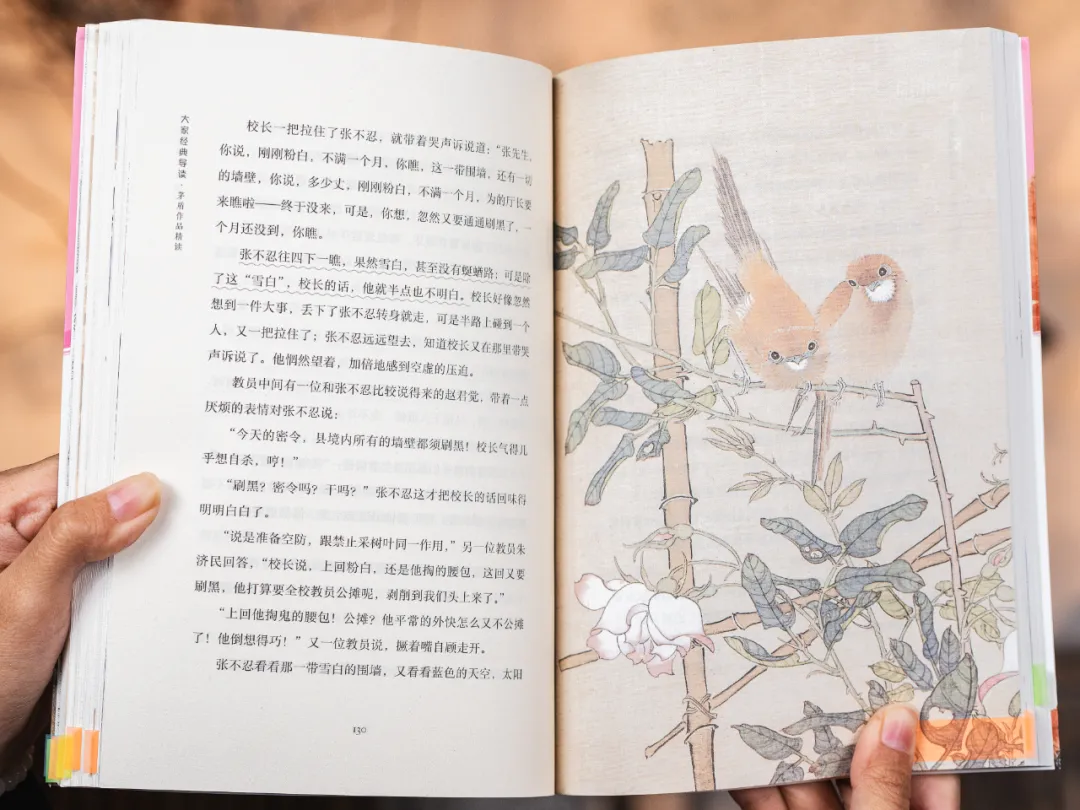 大家经典导读·茅盾作品精读
校长一把拉住了张不忍，就带着哭声诉说道：“张先生，
你说，刚刚粉白，不满一个月，你瞧，这一带围墙，还有一切
的墙壁，你说，多少丈，刚刚粉白，不满一个月，为的厅长要
来瞧啦——终于没来，可是，你想，忽然又要通通刷黑了，一
个月还没到，你瞧。
张不忍往四下一瞧，果然雪白，甚至没有蜒蚰路；可是除
了这“雪白”，校长的话，他就半点也不明白。校长好像忽然
想到一件大事，丢下了张不忍转身就走，可是半路上碰到一个
人，又一把拉住了；张不忍远远望去，知道校长又在那里带哭
声诉说了。他惘然望着，加倍地感到空虚的压迫。
教员中间有一位和张不忍比较说得来的赵君觉，带着一点
厌烦的表情对张不忍说：
“今天的密令，县境内所有的墙壁都须刷黑！校长气得几
乎想自杀，哼！”
“刷黑？密令吗？干吗？”张不忍这才把校长的话回味得
明明白白了。
“说是准备空防，跟禁止采树叶同一作用，”另一位教员朱
济民回答，“校长说，上回粉白，还是他掏的腰包，这回又要
刷黑，他打算要全校教员公摊呢，剥削到我们头上来了。”
“上回他掏鬼的腰包！公摊？他平常的外快怎么又不公摊
了！他倒想得巧！”又一位教员说，撅着嘴自顾走开。
张不忍看看那一带雪白的围墙，又看看蓝色的天空，太阳
130